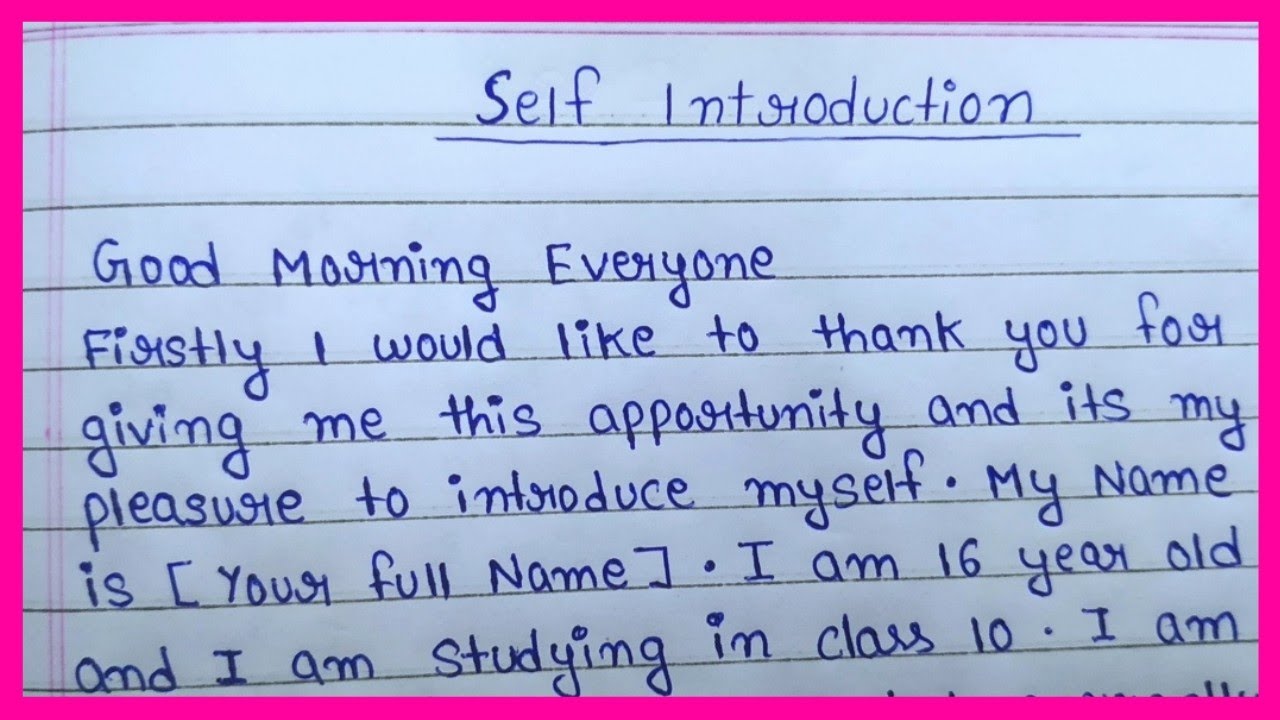 Self Introduction
Good Morning Everyone
Firstly I would like to thank you for
giving me this apportunity and its my
pleasure to introduce myself. My Name
is [Your full Name]. I am 16 year old
and I am studying in class 10. I am